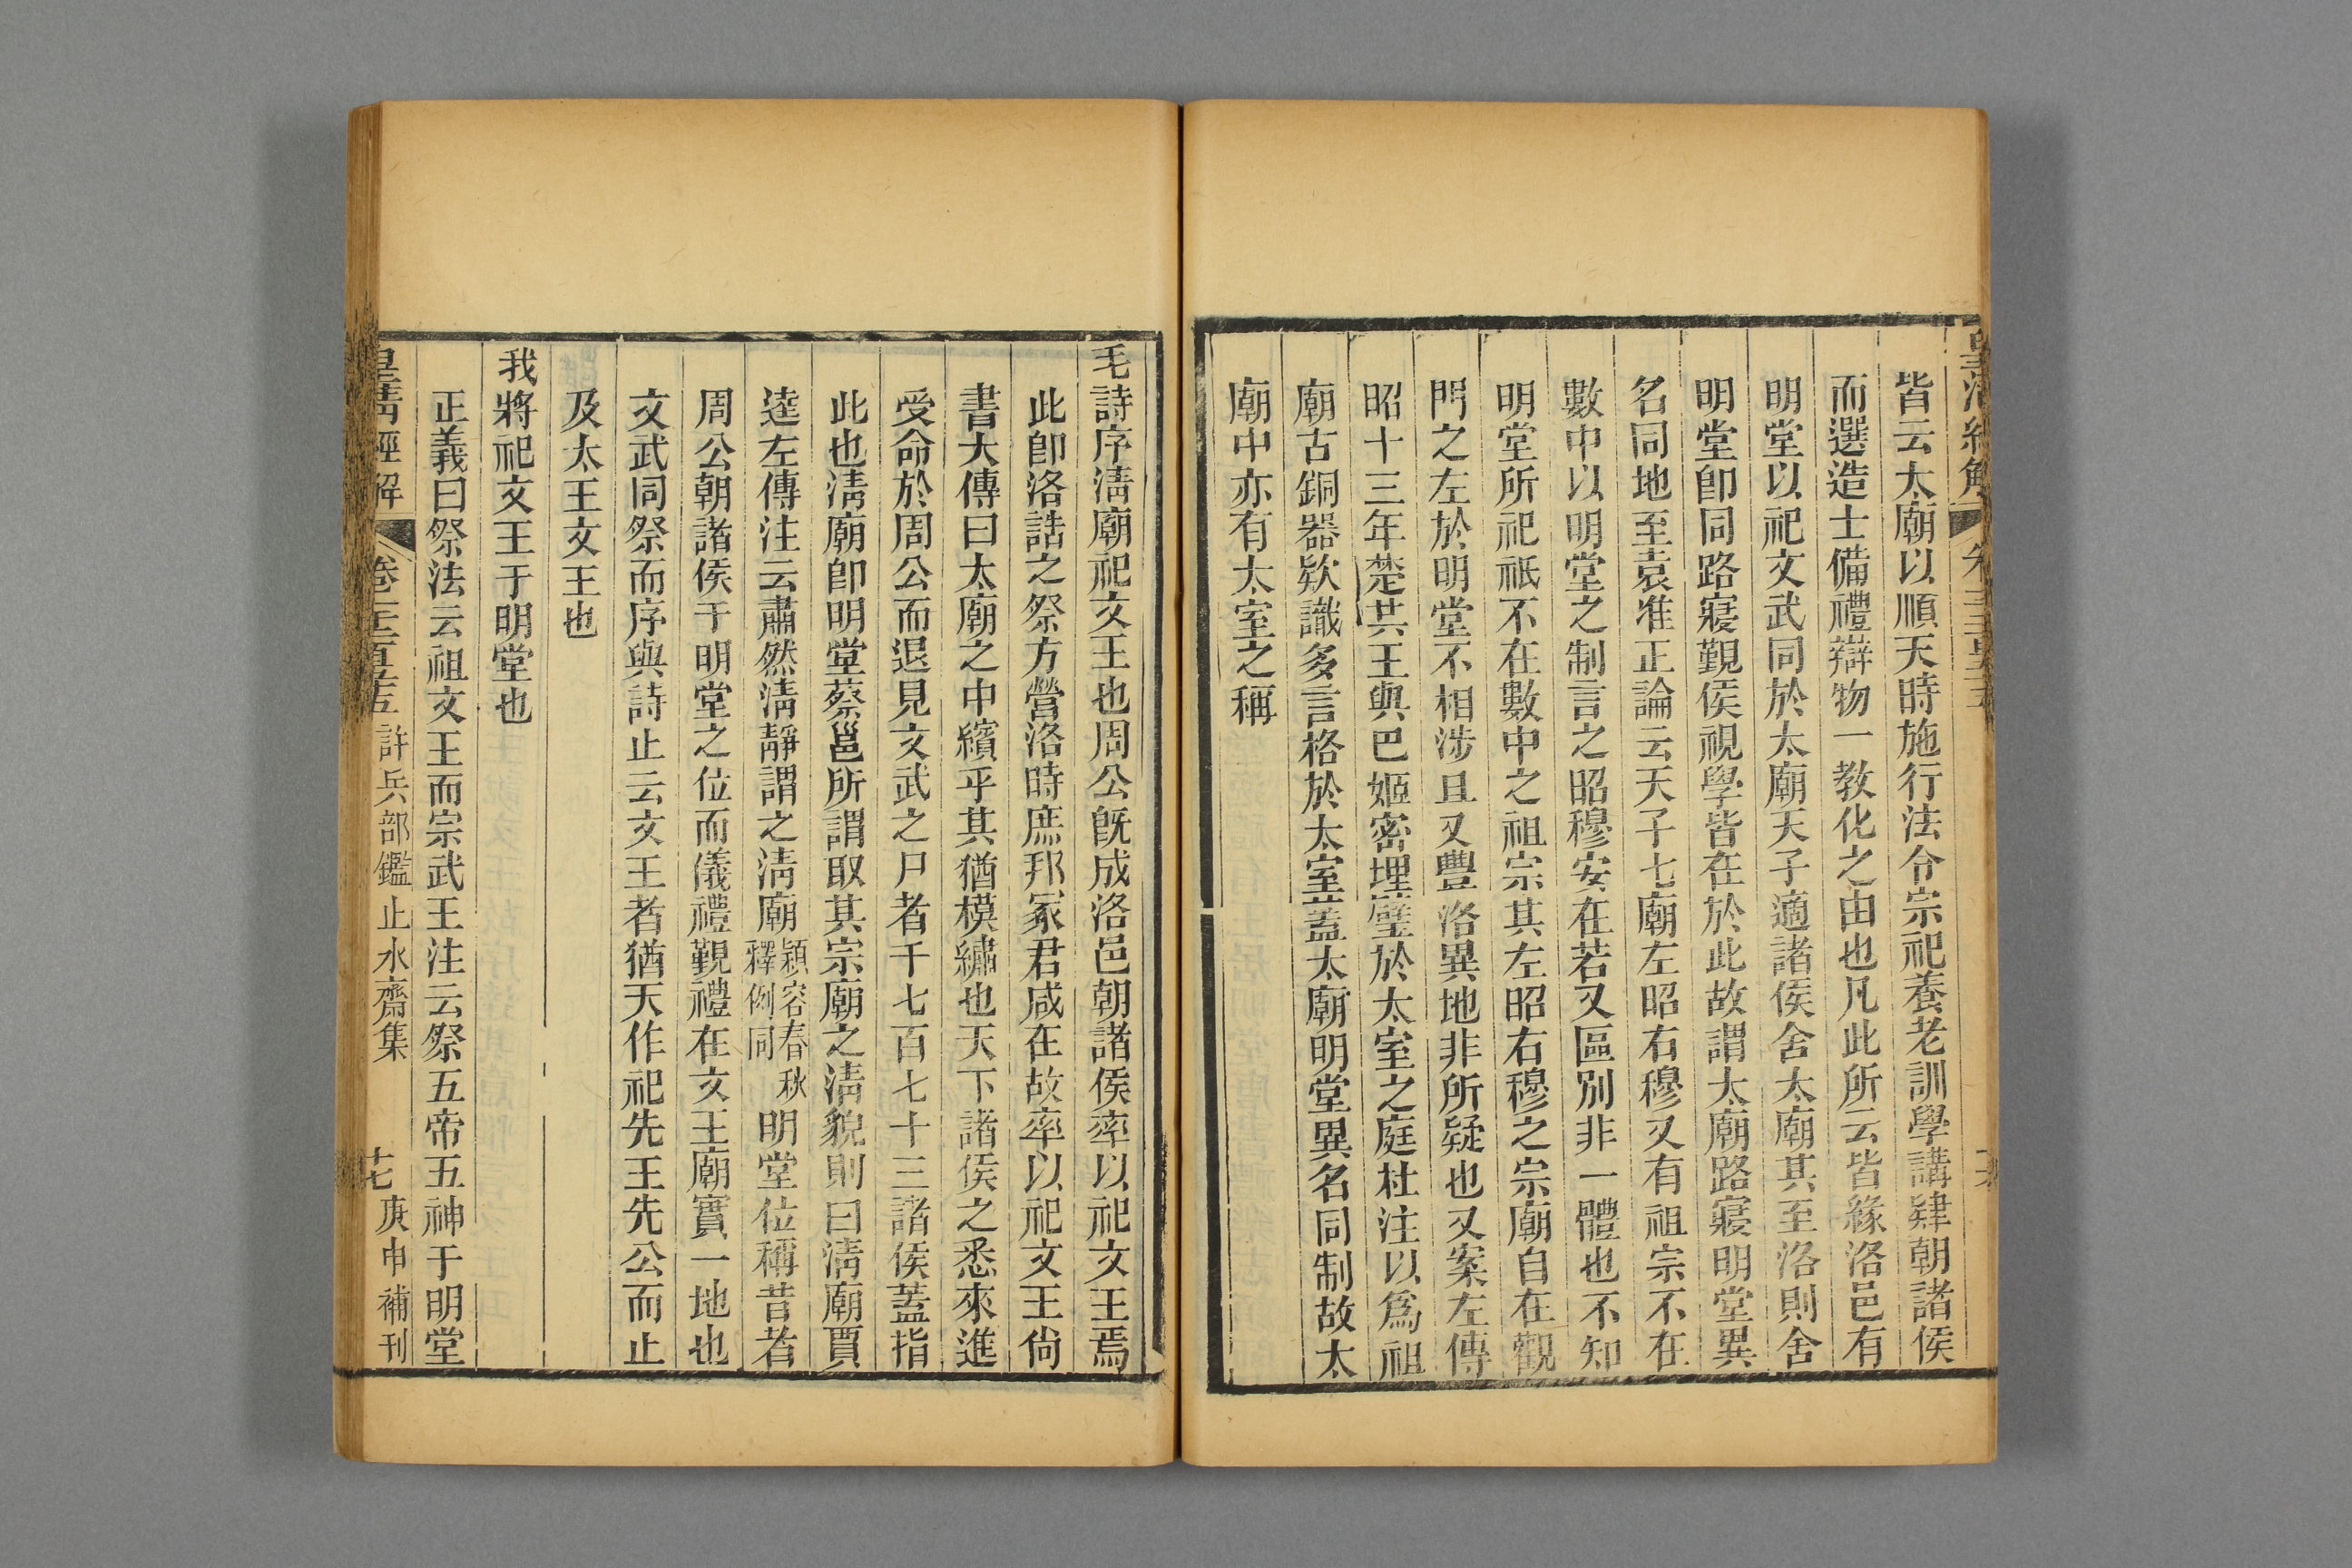 皆云太廟以順天時施行法令宗祀養老訓學講肄朝諸侯
而選造士備禮辯物一教化之由也凡此所云皆緣洛邑有
明堂以祀文武同於太廟天子適諸侯舍太廟其至洛則舍
明堂卽同路寢覲侯視學皆在於此故謂太廟路寢明堂異
名同地至袁准正論云天子七廟左昭右穆又有祖宗不在
數中以明堂之制言之昭穆安在若又區別非一體也不知
明堂所祀祇不在數中之祖宗其左昭右穆之宗廟自在觀
門之左於明堂不相涉且又豐洛異地非所疑也又案左傳
昭十三年楚共王與巴姬密埋璧於太室之庭杜注以爲祖
廟古銅器欵識多言格於太室蓋太廟明堂異名同制故太
廟中亦有太室之稱
毛詩序淸廟祀文王也周公旣成洛邑朝諸侯率以祀文王焉
此卽洛誥之祭方營洛時庶邦冢君咸在故率以祀文王尙
書大傳曰太廟之中繽乎其猶模繡也天下諸侯之悉來進
受命於周公而退見文武之尸者千七百七十三諸侯蓋指
此也淸廟卽明堂蔡邕所謂取其宗廟之淸貌則曰淸廟賈
逵左傳注云肅然淸靜謂之淸廟穎容春秋釋例同明堂位稱昔者
周公朝諸侯于明堂之位而儀禮覲禮在文王廟實一地也
文武同祭而序與詩止云文王者猶天作祀先王先公而止
及太王文王也
我將祀文王于明堂也
正義曰祭法云祖文王而宗武王注云祭五帝五神于明堂
皇淸經解 卷三百三十五 許兵部鑑止水齋集 十七 庚申補刊